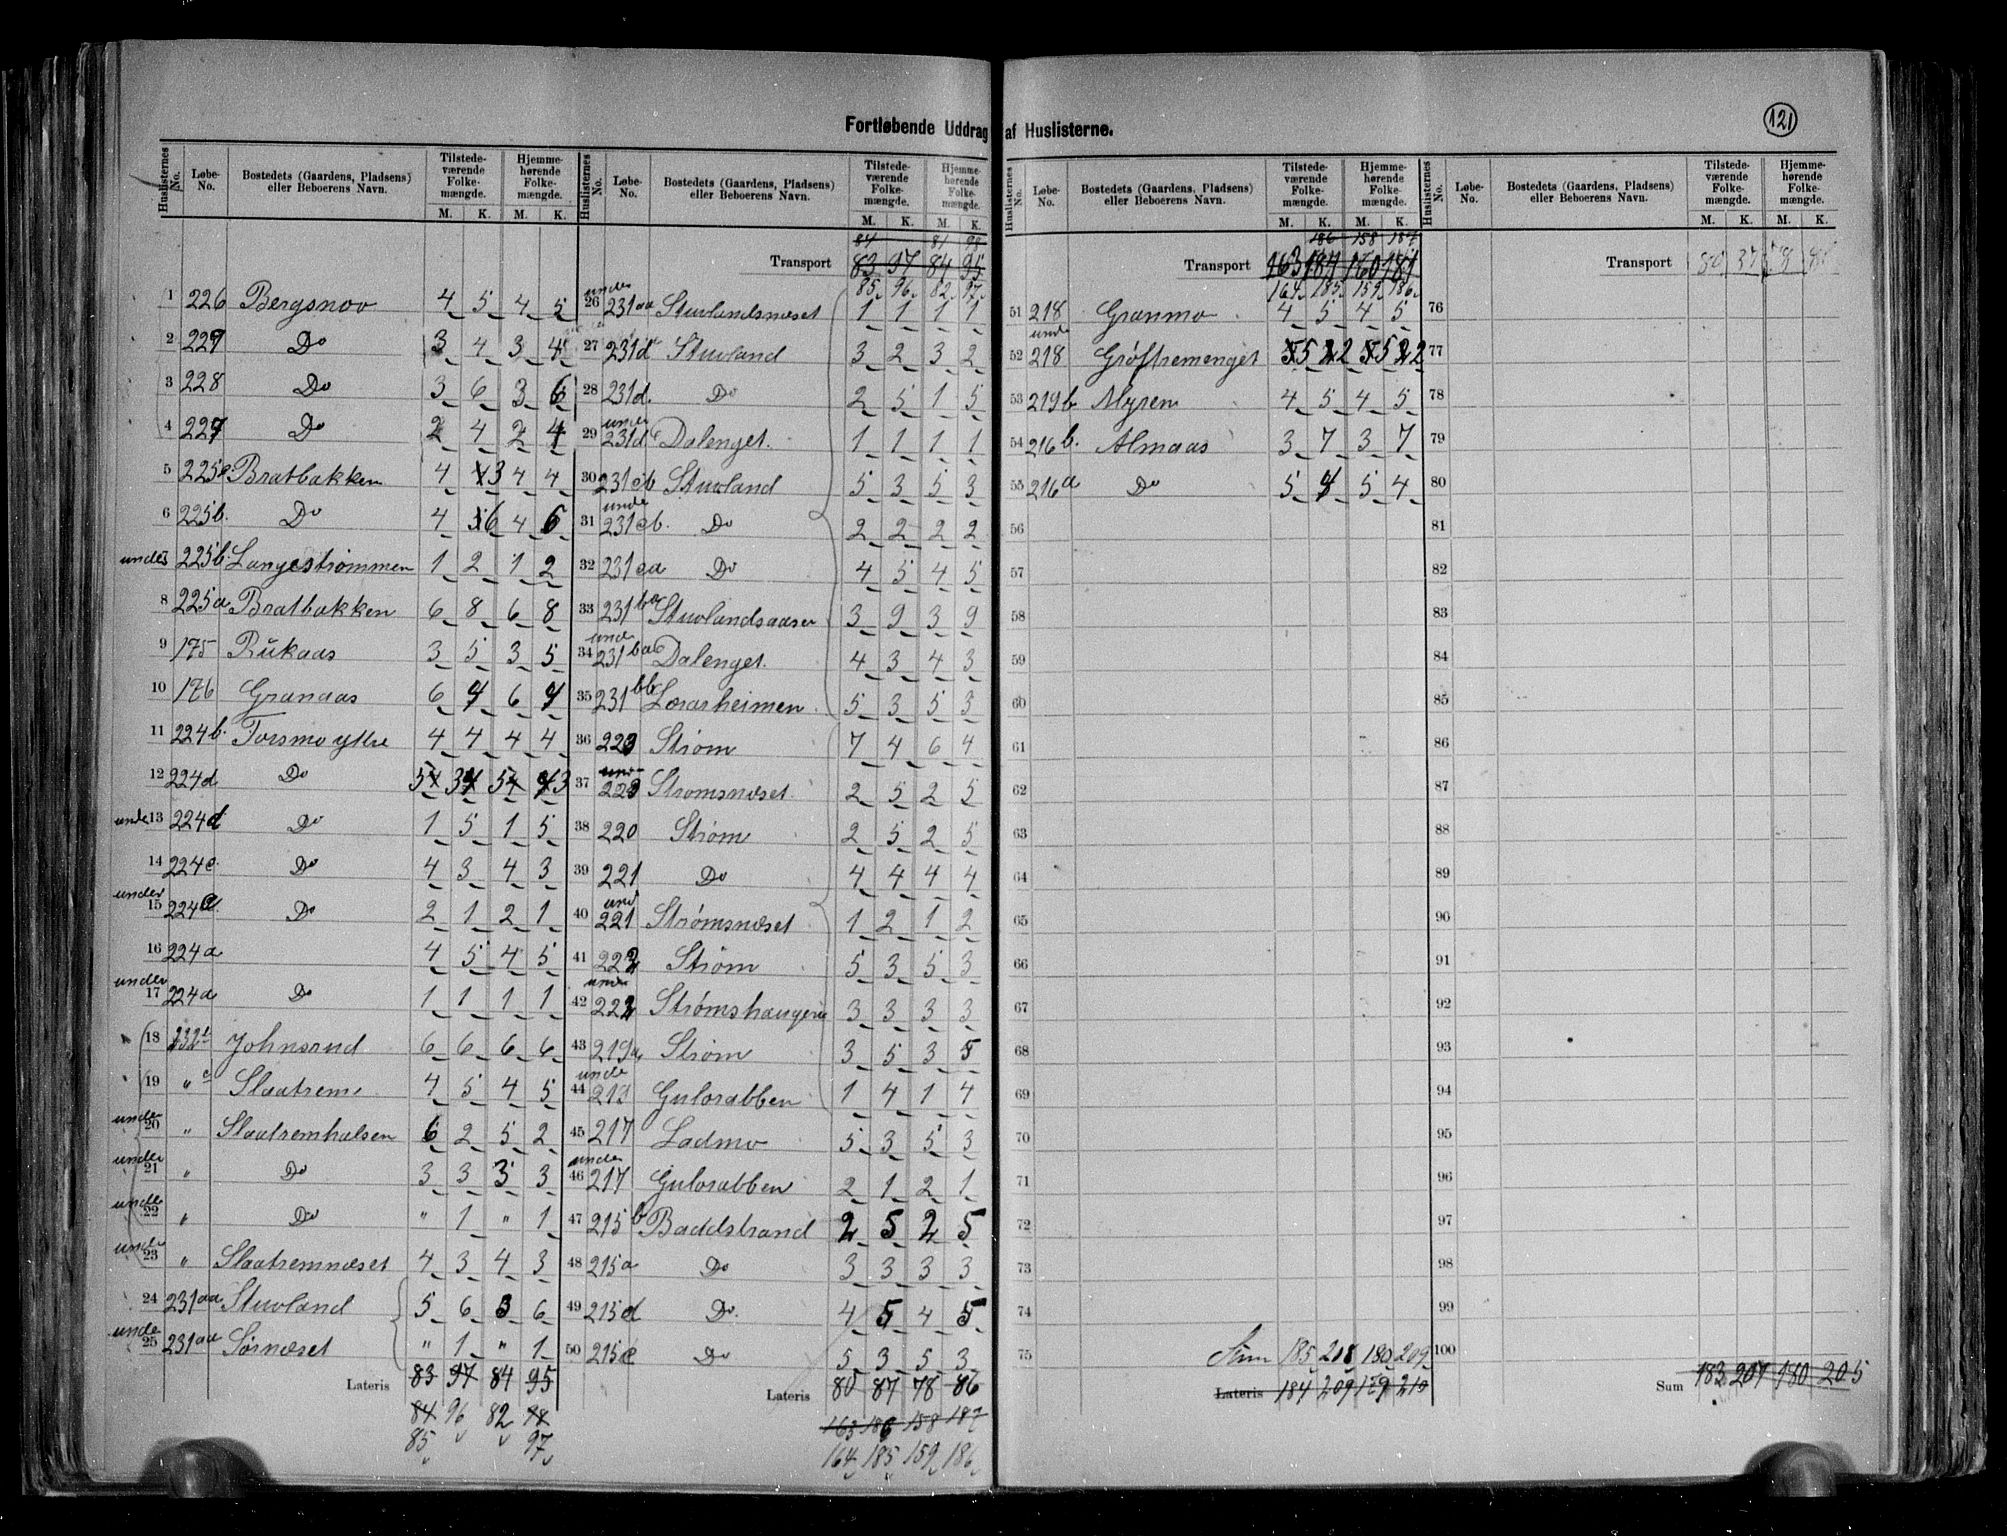 Fortløbende Uddrag af Huslisterne.
121
Huslisternes No. | Løbe-No. | Bostedets (Gaardens, Pladsens) eller Beboerens Navn. | Tilstedeværende Folkemængde. M. K. | Hjemmehørende Folkemængde. M. K.
1 226 Bergsnov 4 5 4 5
2 227 Do 3 4 3 4
3 228 Do 3 6 3 6
4 227 Do 2 4 2 4
5 225c Bratbakken 4 3 4 4
6 225b. Do 4 6 4 6
under 7 225b. Langestrømmen 1 2 1 2
8 225a Bratbakken 6 8 6 8
9 175 Rukaas 3 5 3 5
10 176 Granaas 6 4 6 4
11 224b. Forsmo yttre 4 4 4 4
12 224d Do 5 3 5 3
unde 13 224d Do 1 5 1 5
14 224c. Do 4 3 4 3
under 15 224c. Do 2 1 2 1
16 224a 4 5 4 5
under 17 224a Do 1 1 1 1
18 232 Johnsrud 6 6 6 6
19 " c Slaatrem 4 5 4 5
unde 20 " Slaatremhalsen 6 2 5 2
under 21 " Do 3 3 3 3
under 22 " Do " 1 " 1
unde 23 " Slaatremnæset 4 3 4 3
24 231aa Stuvland 5 6 3 6
unde 25 231aa Sørnæset " 1 " 1
Lateris 83 97 84 95
84 96 82 98
85 97
Huslisternes No. | Løbe-No. | Bostedets (Gaardens, Pladsens) eller Beboerens Navn. | Tilstedeværende Folkemængde. M. K. | Hjemmehørende Folkemængde. M. K.
84 81 98
Transport 83 97 84 95
85 96 82 97
under 26 231aa Stuvlandsnæset 1 1 1 1
27 231d Stuvland 3 2 3 2
28 231d. Do 2 5 1 5
under 29 231d Dalenget. 1 1 1 1
30 231cb Stuvland 5 3 5 3
unde 31 231cb. Do 2 2 2 2
32 231ca Do 4 5 4 5
33 231ba Stuvlandsaasen 3 9 3 9
unde 34 231ba Dalenget. 4 3 4 3
35 231bb Lærarheimen 5 3 5 3
36 223 Strøm 7 4 6 4
und 37 223 Strømsnæset. 2 5 2 5
38 220 Strøm 2 5 2 5
39 221 Do 4 4 4 4
und 40 221 Strømsnæset 1 2 1 2
41 222 Strøm 5 3 5 3
under 42 222 Strømshaugen 3 3 3 3
43 219a Strøm 3 5 3 5
unde 44 219 Gulorabben 1 4 1 4
45 217 Ladmo 5 3 5 3
under 46 217 Gulorabben 2 1 2 1
47 215b Baddstrand 2 5 2 5
48 215a Do 3 3 3 3
49 215d Do. 4 5 4 5
50 215c Do 5 3 5 3
Lateris 80 87 78 86
163 186 158 187
164 185 159 186
Huslisternes No. | Løbe-No. | Bostedets (Gaardens, Pladsens) eller Beboerens Navn. | Tilstedeværende Folkemængde. M. K. | Hjemmehørende Folkemængde. M. K.
186 158 187
Transport 163 184 160 181
164 185 159 186
51 218 Granmo 4 5 4 5
unde 52 218 Grøftremenget 5 2 5 2
53 219b Myren 4 5 4 5
54 216b. Almaas 3 7 3 7
55 216a Do 5 4 5 4
56
57
58
59
60
61
62
63
64
65
66
67
68
69
70
71
72
73
74
75
Sum 185 208 180 209
Lateris 184 209 179 210
Huslisternes No. | Løbe-No. | Bostedets (Gaardens, Pladsens) eller Beboerens Navn. | Tilstedeværende Folkemængde. M. K. | Hjemmehørende Folkemængde. M. K.
Transport
76
77
78
79
80
81
82
83
84
85
86
87
88
89
90
91
92
93
94
95
96
97
98
99
100
Sum 183 207 180 205